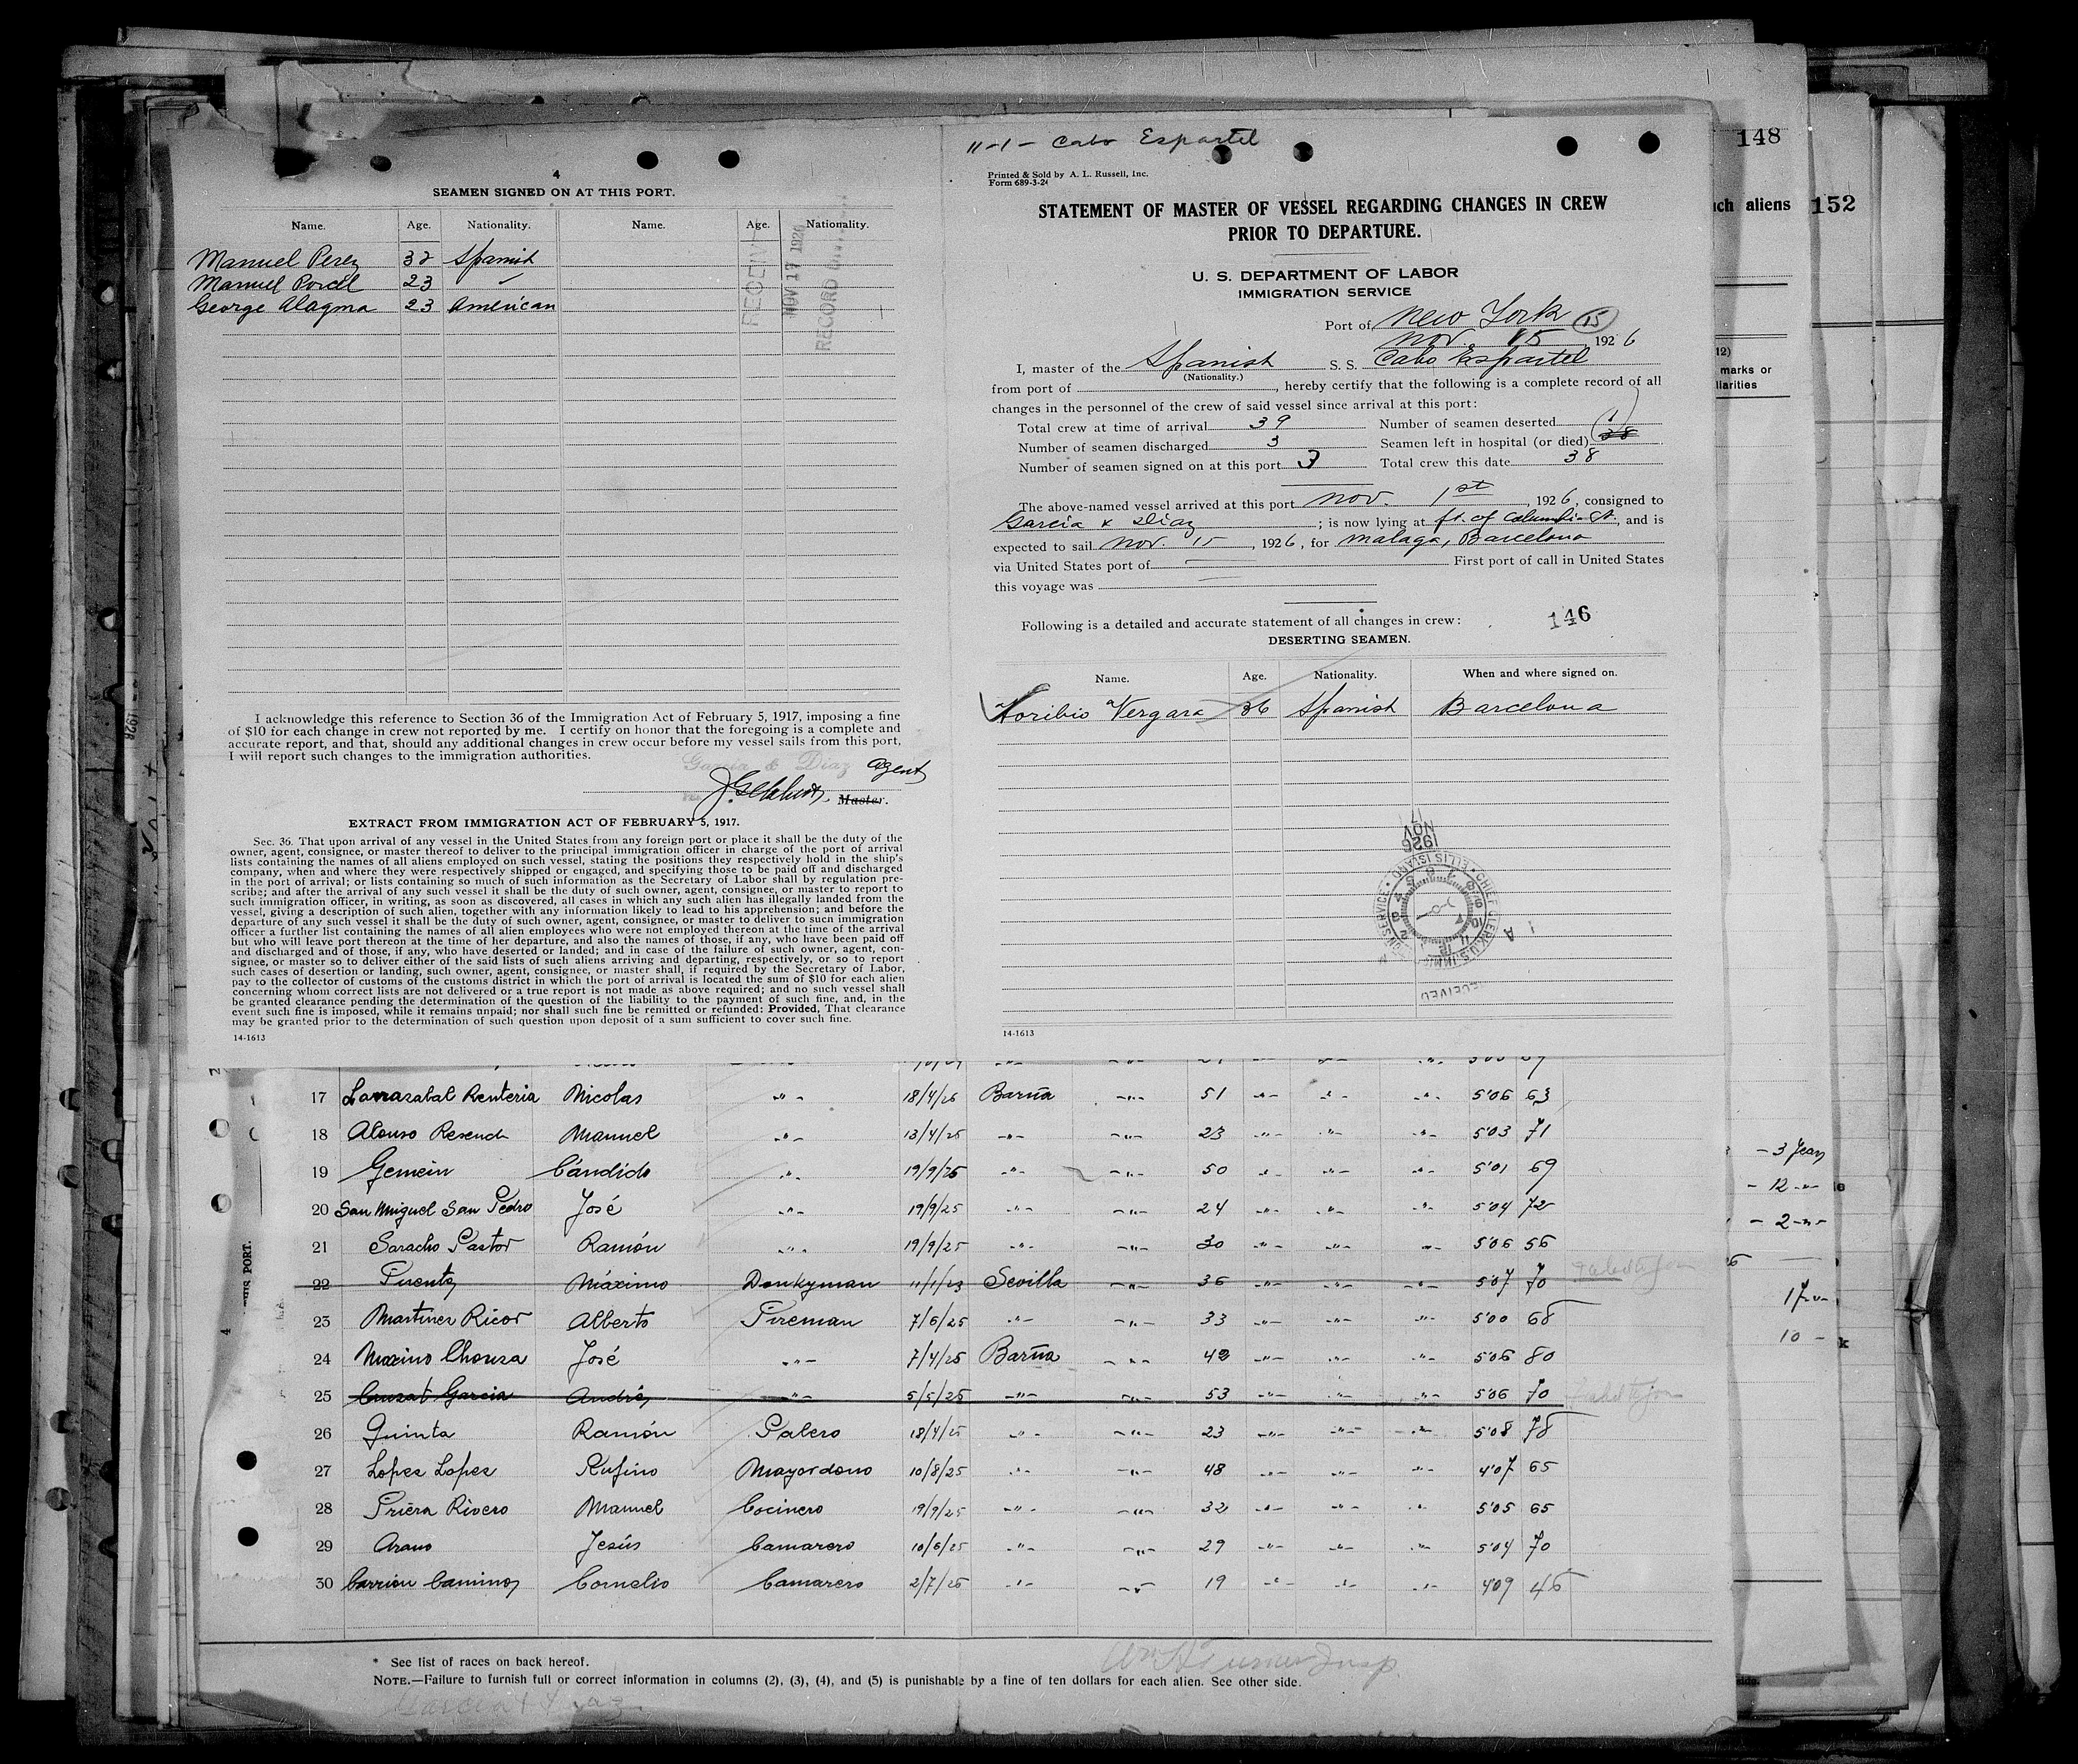 4
SEAMEN SIGNED ON AT THIS PORT.
Name. Age. Nationality. Name. Age. Nationality.
Manuel Perez 32 Spanish
Manuel Porcel 23 "
George Alagma 23 American
NOV 17 1926
RECORD
I acknowledge this reference to Section 36 of the Immigration Act of February 5, 1917, imposing a fine
of $10 for each change in crew not reported by me. I certify on honor that the foregoing is a complete and
accurate report, and that, should any additional changes in crew occur before my vessel sails from this port,
I will report such changes to the immigration authorities.
Garcia & Diaz Agent
Master.
EXTRACT FROM IMMIGRATION ACT OF FEBRUARY 5, 1917.
Sec. 36. That upon arrival of any vessel in the United States from any foreign port or place it shall be the duty of the
owner, agent, consignee, or master thereof to deliver to the principal immigration officer in charge of the port of arrival
lists containing the names of all aliens employed on such vessel, stating the positions they respectively hold in the ship's
company, when and where they were respectively shipped or engaged, and specifying those to be paid off and discharged
in the port of arrival; or lists containing so much of such information as the Secretary of Labor shall by regulation pre-
scribe; and after the arrival of any such vessel it shall be the duty of such owner, agent, consignee, or master to report to
such immigration officer, in writing, as soon as discovered, all cases in which any such alien has illegally landed from the
vessel, giving a description of such alien, together with any information likely to lead to his apprehension; and before the
departure of any such vessel it shall be the duty of such owner, agent, consignee, or master to deliver to such immigration
officer a further list containing the names of all alien employees who were not employed thereon at the time of the arrival
but who will leave port thereon at the time of her departure, and also the names of those, if any, who have been paid off
and discharged and of those, if any, who have deserted or landed; and in case of the failure of such owner, agent, con-
signee, or master so to deliver either of the said lists of such aliens arriving and departing, respectively, or so to report
such cases of desertion or landing, such owner, agent, consignee, or master shall, if required by the Secretary of Labor,
pay to the collector of customs of the customs district in which the port of arrival is located the sum of $10 for each alien
concerning whom correct lists are not delivered or a true report is not made as above required; and no such vessel shall
be granted clearance pending the determination of the question of the liability to the payment of such fine, and, in the
event such fine is imposed, while it remains unpaid; nor shall such fine be remitted or refunded: Provided, That clearance
may be granted prior to the determination of such question upon deposit of a sum sufficient to cover such fine.
14-1613
11-1- Cabo Espartel
Printed & Sold by A. L. Russell, Inc.
Form 689-3-24
STATEMENT OF MASTER OF VESSEL REGARDING CHANGES IN CREW
PRIOR TO DEPARTURE.
U. S. DEPARTMENT OF LABOR
IMMIGRATION SERVICE
Port of New York 15
Nov. 15 1926
I, master of the Spanish S. S. Cabo Espartel
(Nationality.)
from port of , hereby certify that the following is a complete record of all
changes in the personnel of the crew of said vessel since arrival at this port:
Total crew at time of arrival 39 Number of seamen deserted 1
Number of seamen discharged 3 Seamen left in hospital (or died) 38
Number of seamen signed on at this port 3 Total crew this date 38
The above-named vessel arrived at this port Nov. 1st, 1926, consigned to
Garcia & Diaz ; is now lying at ft. of Columbia St., and is
expected to sail Nov. 15, 1926, for Malaga, Barcelona
via United States port of First port of call in United States
this voyage was
Following is a detailed and accurate statement of all changes in crew: 146
DESERTING SEAMEN.
Name. Age. Nationality. When and where signed on.
Toribio Vergara 36 Spanish Barcelona
1926
NOV
17
RECEIVED
14-1613
148
ch aliens 152
12)
marks or
liarities
17 Larrazabal Renteria Nicolas -"- 18/4/26 Barna -"- 51 -"- -"- -"- 5'06 63
18 Alonso Resench Manuel -"- 13/4/25 -"- -"- 23 -"- -"- -"- 5'03 71
19 Gemein Cándido -"- 19/9/25 -"- -"- 50 -"- -"- -"- 5'01 69
20 San Miguel San Pedro José -"- 19/9/25 -"- -"- 24 -"- -"- -"- 5'04 72
21 Saracho Pastor Ramón -"- 19/9/25 -"- -"- 30 -"- -"- -"- 5'06 56
22 Puentes Máximo Donkyman 11/1/23 Sevilla -"- 36 -"- -"- -"- 5'07 70
23 Martinez Ricor Alberto Fireman 7/6/25 -"- -"- 33 -"- -"- -"- 5'00 68
24 Moxino Chouza José -"- 7/4/25 Barna -"- 42 -"- -"- -"- 5'06 80
25 Cruzat Garcia Andrés -"- 5/5/25 -"- -"- 53 -"- -"- -"- 5'06 70
26 Quinta Ramón Palero 18/4/25 -"- -"- 23 -"- -"- -"- 5'08 78
27 Lopez Lopez Rufino Mayordomo 10/8/25 -"- -"- 48 -"- -"- -"- 4'07 65
28 Priera Rivero Manuel Cocinero 19/9/25 -"- -"- 32 -"- -"- -"- 5'05 65
29 Arano Jesús Camarero 10/6/25 -"- -"- 29 -"- -"- -"- 5'04 70
30 Carrion Caminos Cornelio Camarero 2/7/25 -"- -"- 19 -"- -"- -"- 409 46
- 3 years
- 12 -"-
- 2 -"-
10 -
* See list of races on back hereof.
NOTE.—Failure to furnish full or correct information in columns (2), (3), (4), and (5) is punishable by a fine of ten dollars for each alien. See other side.
Garcia & Diaz